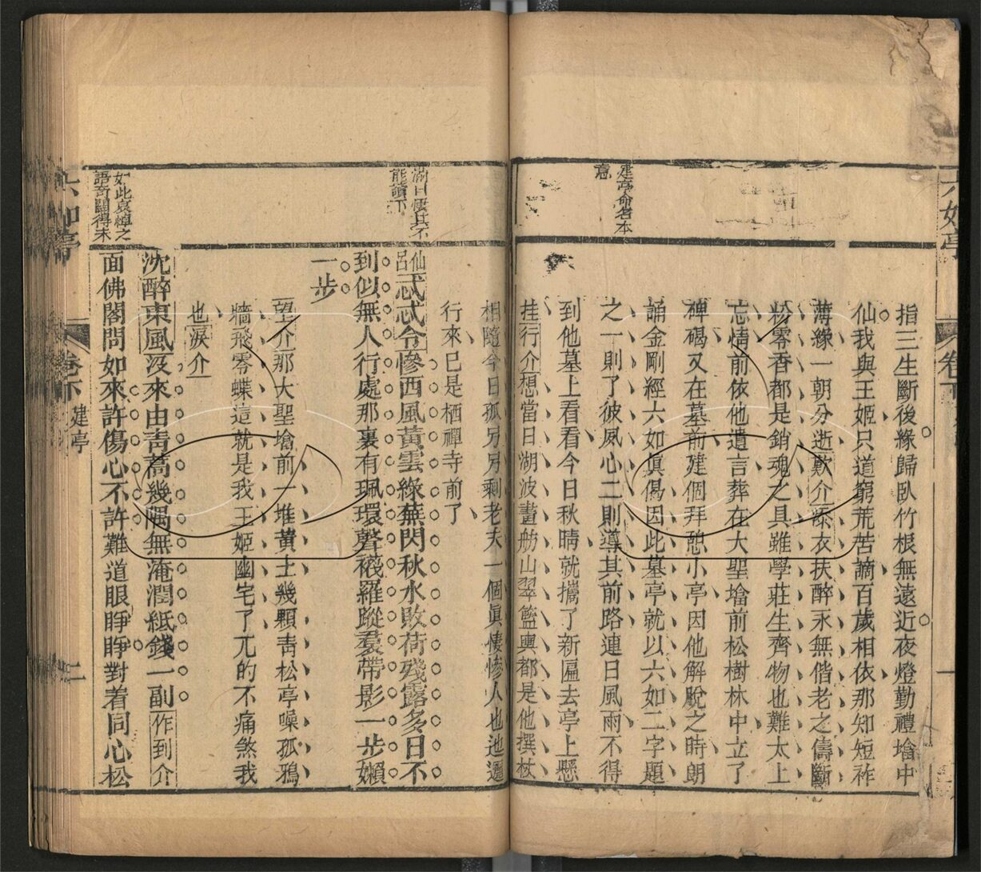 建亭命名本
意
指三生斷後緣歸臥竹根無遠近夜燈勤禮墖中
仙我與王姬只道窮荒苦謫百歲相依那知短祚
薄緣一朝分逝歎介添衣扶醉永無偕老之儔斷
粉零香都是銷魂之具雖學莊生齊物也難太上
忘情前依他遺言葬在大聖墖前松樹林中立了
碑碣又在墓前建個拜憩小亭因他解脫之時朗
誦金剛經六如眞偈因此墓亭就以六如二字題
之一則了彼夙心二則導其前路連日風雨不得
到他墓上看看今日秋晴就攜了新匾去亭上懸
挂行介想當日湖波畫舫山翠籃輿都是他撰杖
相隨今日孤另另剩老夫一個眞悽慘人也迤邐
行來已是栖禪寺前了
滿目悽其不
能讀下
仙呂忒忒令慘西風黃雲綠蕪閃秋水敗荷殘露多日不
到似無人行處那裏有珮環聲襪羅蹤羣帶影一步嬾
一步
望介那大聖墖前一堆黃土幾顆青松亭噪孤鴉
牆飛零蝶這就是我王姬幽宅了兀的不痛煞我
也淚介
如此哀悼之
語奇闢得未
沈醉東風沒來由青蒿幾嘱無淹潤紙錢一副作到介
面佛閣問如來許傷心不許難道眼睜睜對着同心松
六如亭
卷下
建亭
二